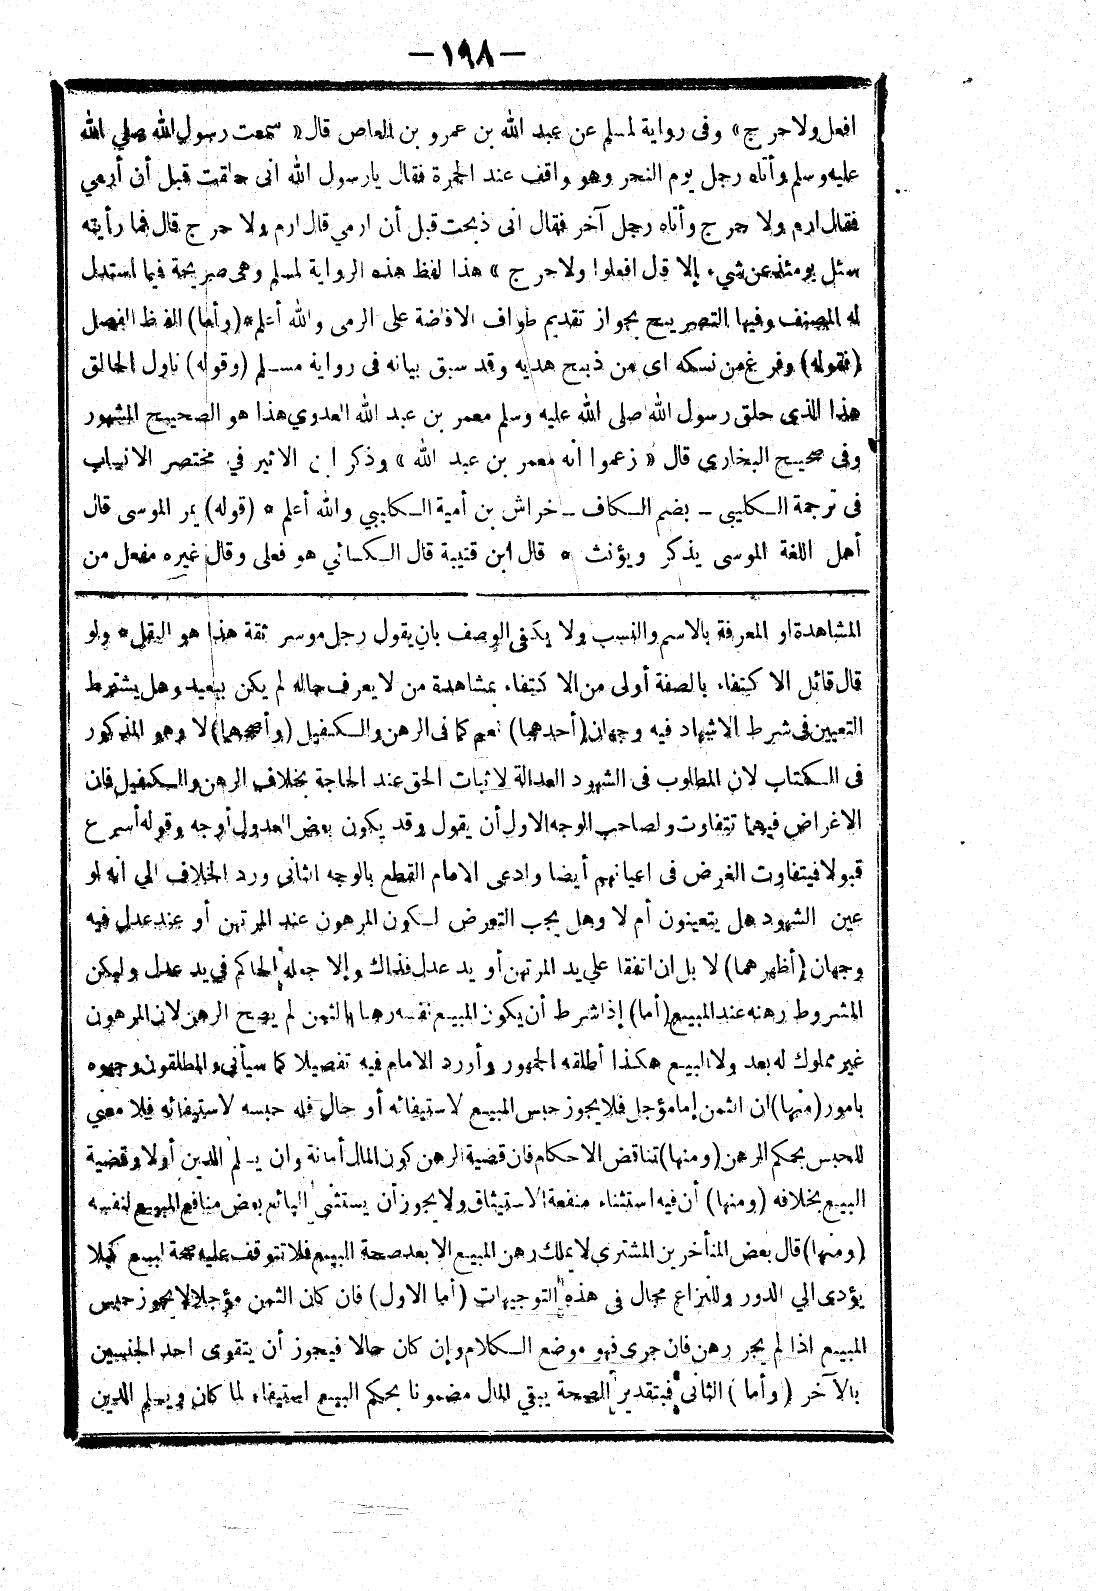 -١٩٨-
افعل ولا حرج» وفى رواية لمسلم عن عبد الله بن عمرو بن العاص قال« سمعت رسول الله صلي الله
عليه وسلم وأتاه رجل يوم النحر وهو واقف عند الجمرة فقال يارسول الله انى حلقت قبل أن أرمي
فقال ارم ولا حرج وأتاه رجل آخر فقال انى ذبحت قبل أن ارمي قال ارم ولا حرج قال فما رأيته
سئل يومئذ عن شيء إلا قال افعلوا ولا حرج » هذا لفظ هذه الرواية لمسلم وهى صريحة فيما استدل
له المصنف وفيها التصريح بجواز تقديم طواف الافاضة على الرمى والله أعلم*(وأما) الفاظ الفصل
(فقوله) وفرغ من نسكه اى من ذبح هديه وقد سبق بيانه فى رواية مسلم (وقوله) ناول الحالق
هذا الذى حلق رسول الله صلى الله عليه وسلم معمر بن عبد الله العدوي هذا هو الصحيح المشهور
وفى صحيح البخاري قال « زعموا انه معمر بن عبد الله » وذكر ابن الاثير في مختصر الانساب
فى ترجمة الكليبى - بضم الكاف - خراش بن أمية الكليبي والله أعلم * (قوله) يمر الموسى قال
أهل اللغة الموسى يذكر ويؤنث * قال ابن قتيبة قال الكسائي هو فعلى وقال غيره مفعل من
المشاهدة او المعرفة بالاسم والنسب ولا يكفى الوصف بان يقول رجل موسر ثقة هذا هو النقل* ولو
قال قائل الاكتفاء بالصفة أولى من الاكتفاء بمشاهدة من لا يعرف حاله لم يكن ببعيد وهل يشترط
التعيين فى شرط الاشهاد فيه وجهان (أحدهما) نعم كما فى الرهن والكفيل (وأصحهما) لا وهو المذكور
فى الكتاب لان المطلوب فى الشهود العدالة لاثبات الحق عند الحاجة بخلاف الرهن والكفيل فان
الاغراض فيهما تتفاوت ولصاحب الوجه الاول أن يقول وقد يكون بعض العدول أوجه وقوله أسرع
قبولا فيتفاوت الغرض فى اعيانهم أيضا وادعى الامام القطع بالوجه الثانى ورد الخلاف الي انه لو
عين الشهود هل يتعينون أم لا وهل يجب التعرض لكون المرهون عند المرتهن أو عند عدل فيه
وجهان (أظهرهما) لا بل ان اتفقا علي يد المرتهن أو يد عدل فذاك وإلا جعله الحاكم في يد عدل وليكن
المشروط رهنه عند المبيع (أما) إذا شرط أن يكون المبيع نفسه رهنا بالثمن لم يصح الرهن لان المرهون
غير مملوك له بعد ولا البيع هكذا أطلقه الجمهور وأورد الامام فيه تفصيلا كما سيأتى والمطلقون وجهوه
بامور (منها) ان الثمن إما مؤجل فلا يجوز حبس المبيع لاستيفائه أو حال فله حبسه لاستيفائه فلا معني
للحبس بحكم الرهن (ومنها) تناقض الاحكام فان قضية الرهن كون المال أمانة وان يسلم الدين أولا وقضية
البيع بخلافه (ومنها) أن فيه استثناء منفعة الاستيثاق ولا يجوز أن يستثنى البائع بعض منافع المبيع لنفسه
(ومنها) قال بعض المتأخرين المشتري لا يملك رهن المبيع الا بعد صحة البيع فلا تتوقف عليه صحة البيع كيلا
يؤدى الي الدور وللنزاع مجال فى هذه التوجيهات (أما الاول) فان كان الثمن مؤجلا لا يجوز حبس
المبيع اذا لم يجر رهن فان جرى فهو موضع الكلام وإن كان حالا فيجوز أن يتقوى احد الجنسين
بالآخر (وأما) الثانى فبتقدير الصحة يبقي المال مضمونا بحكم البيع استيفاء لما كان ويسلم الدين